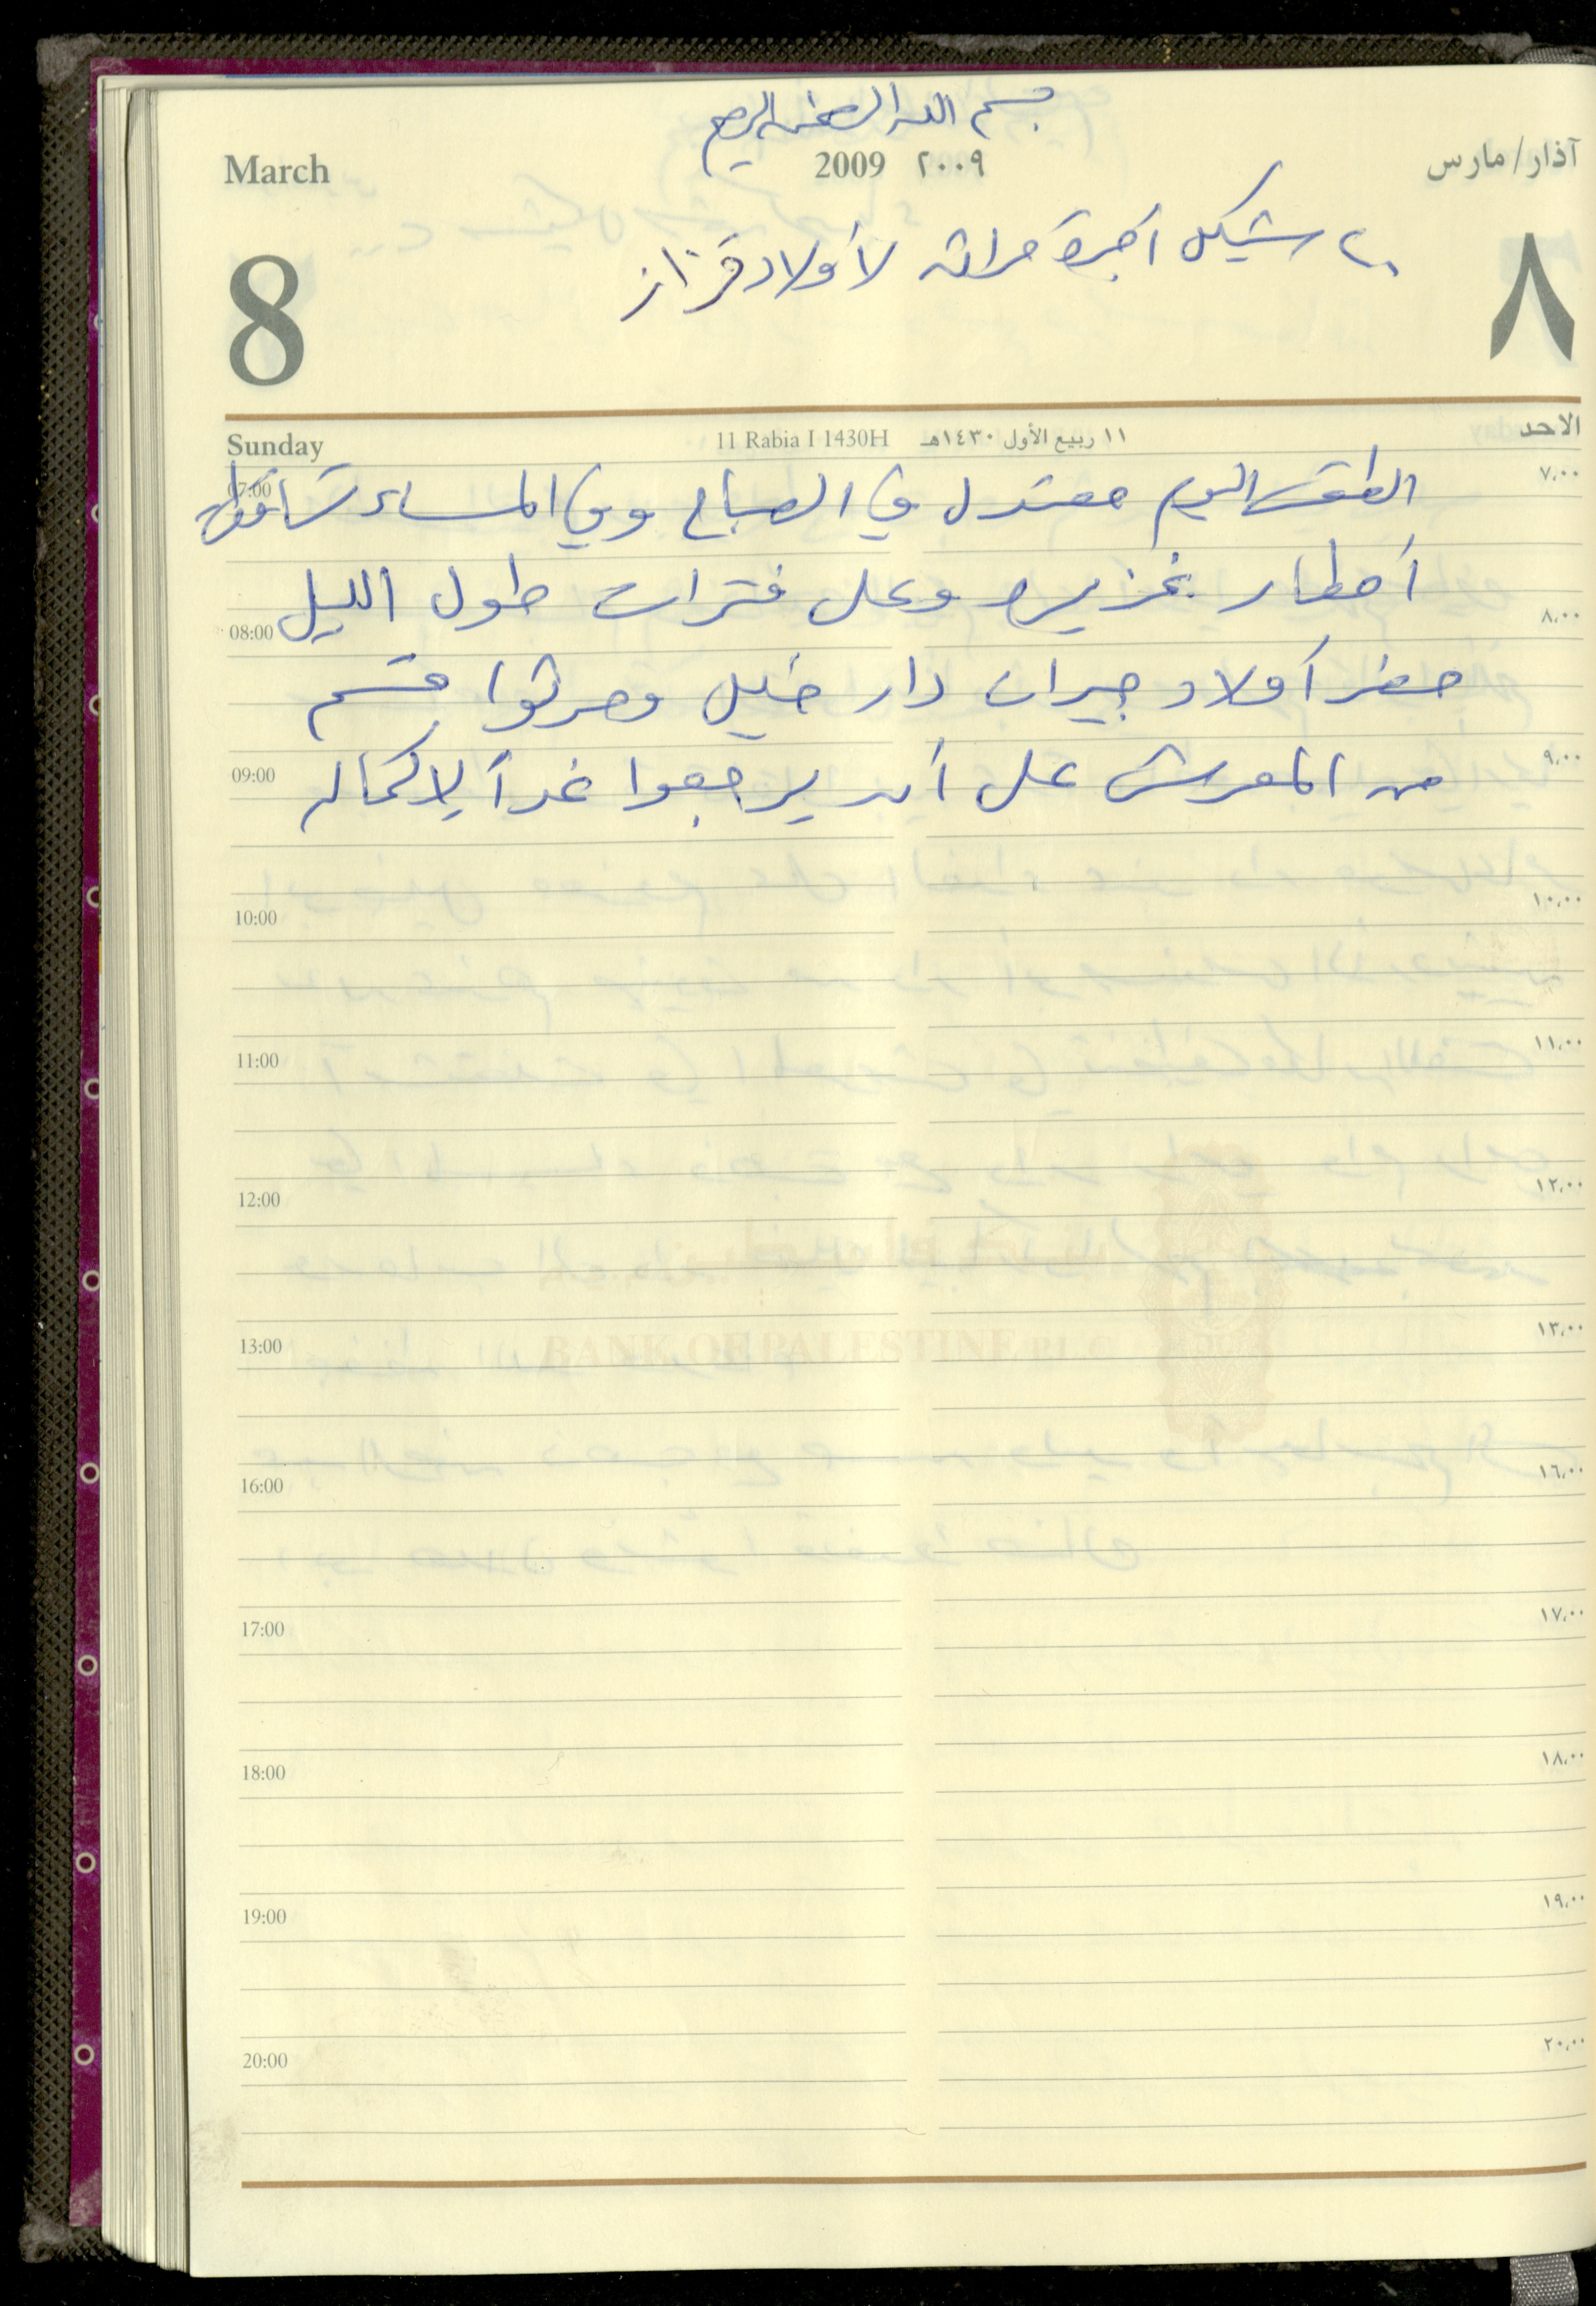 بسم الله الرحمن الرحيم
March 2009 ٢٠٠٩ آذار/مارس
٢٠ شيكل أجرة حراثه لأولاد قزاز
8 ٨
Sunday 11 Rabia I 1430H ١١ ربيع الأول ١٤٣٠هـ الاحد
07:00 ٧,٠٠
الطقس اليوم معتدل في الصباح وفي المساء تساقطت
أمطار غزيره وعلى فترات طول الليل
08:00 ٨,٠٠
حضر أولاد جيران دار خليل وحرثوا قسم
من المعرش على أن يرجعوا غداً لإكماله
09:00 ٩,٠٠
10:00 ١٠,٠٠
11:00 ١١,٠٠
12:00 ١٢,٠٠
BANK OF PALESTINE PLC
13:00 ١٣,٠٠
16:00 ١٦,٠٠
17:00 ١٧,٠٠
18:00 ١٨,٠٠
19:00 ١٩,٠٠
20:00 ٢٠,٠٠